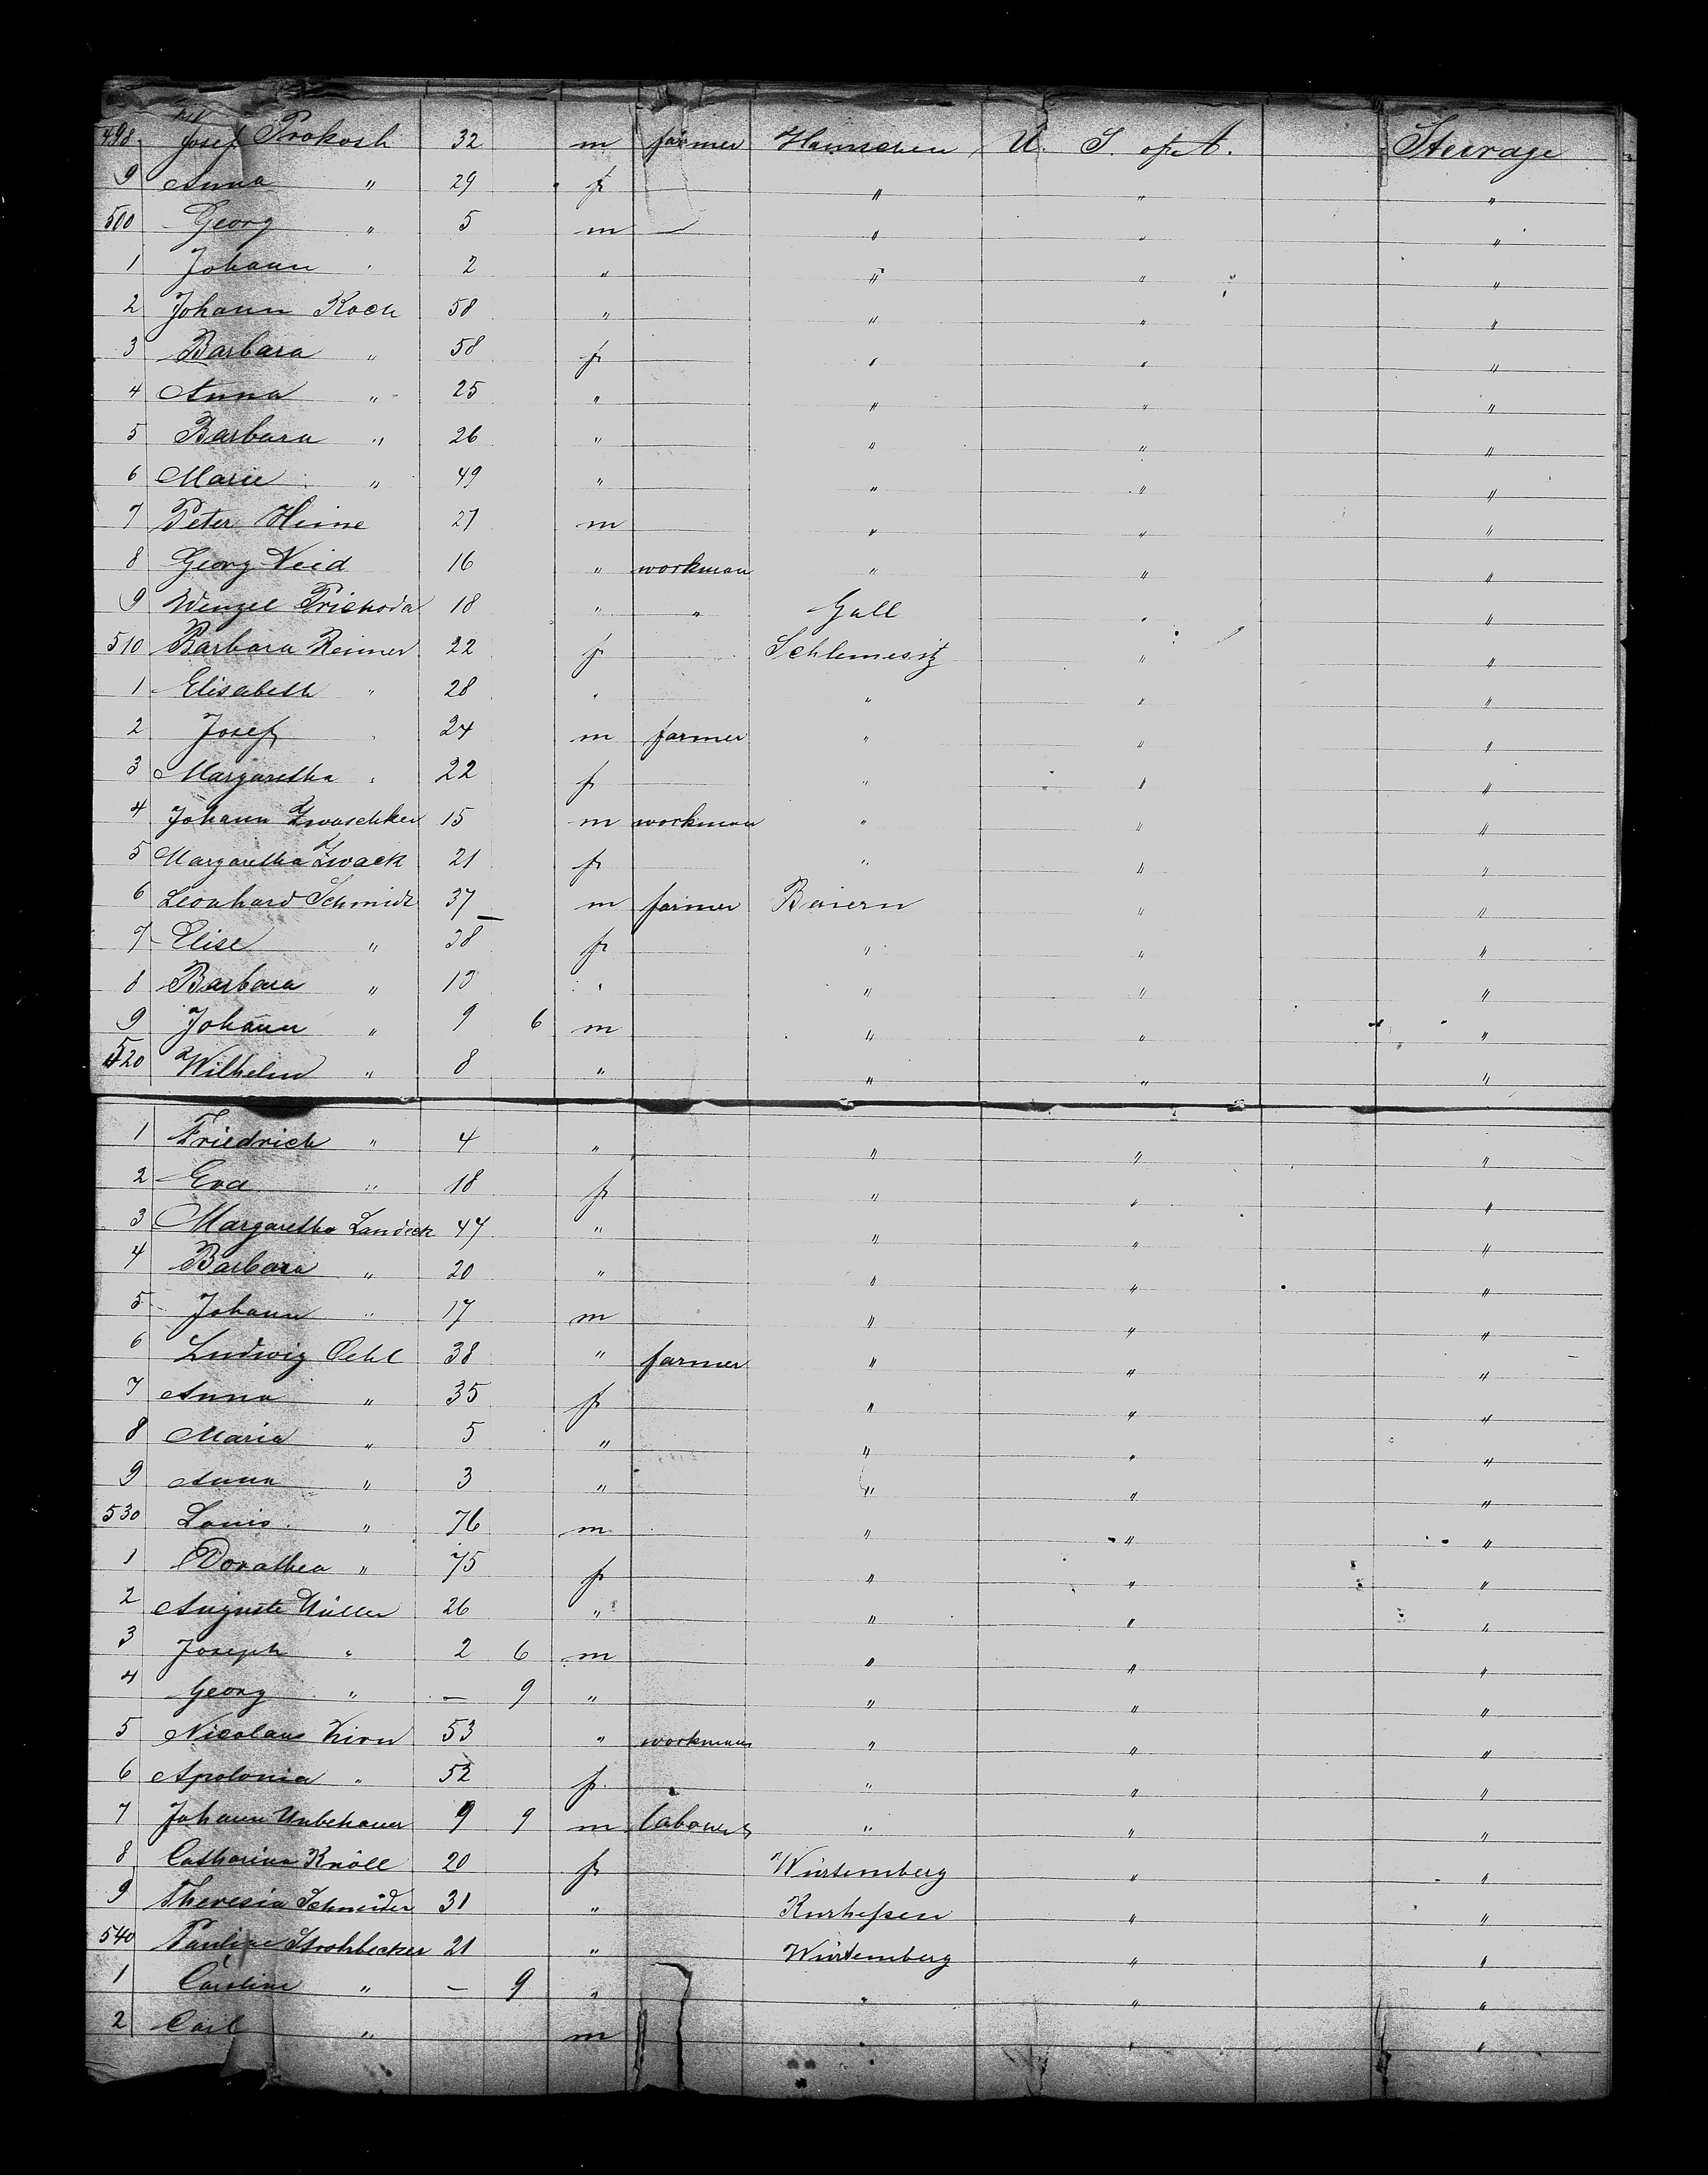 498 Josef Prokosh 32 m farmer U. S. of A. Steerage
9 Anna " 29 f " " "
500 Georg " 5 m " " "
1 Johann " 2 " " " "
2 Johann Koch 58 " " " "
3 Barbara " 58 f " " "
4 Anna " 25 " " " "
5 Barbara " 26 " " " "
6 Marie " 49 " " " "
7 Peter Heine 27 m " " "
8 Georg Veid 16 " workman " " "
9 Wenzel Prishoda 18 " " Gall " "
510 Barbara Reimer 22 f Schlemesitz " "
1 Elisabeth " 28 " " " "
2 Josef " 24 m farmer " " "
3 Margaretha " 22 f " " "
4 Johann Zwaschker 15 m workman " " "
5 Margaretha Zwack 21 f " " "
6 Leonhard Schmidt 37 m farmer Baiern " "
7 Elise " 38 f " " "
8 Barbara " 10 " " " "
9 Johann " 9 6 m " " "
520 Wilhelm " 8 " " " "
1 Friedrich " 4 " " " "
2 Eva " 18 f " " "
3 Margaretha Landeck 47 " " " "
4 Barbara " 20 " " " "
5 Johann " 17 m " " "
6 Ludwig Oehl 38 " farmer " " "
7 Anna " 35 f " " "
8 Maria " 5 " " " "
9 Anna " 3 " " " "
530 Louis " 76 m " " "
1 Dorathea " 75 f " " "
2 Auguste Müller 26 " " " "
3 Joseph " 2 6 m " " "
4 Georg " — 9 " " " "
5 Nicolaus Kirn 53 " workman " " "
6 Apolonia " 52 f " " "
7 Johann Unbehauer 9 9 m labourer " " "
8 Catharina Knöll 20 f Würtemberg " "
9 Theresia Schneider 31 " Kurhessen " "
540 Pauline Strohbecker 21 " Würtemberg " "
1 Caroline " — 9 " " " "
2 Carl " m " " "